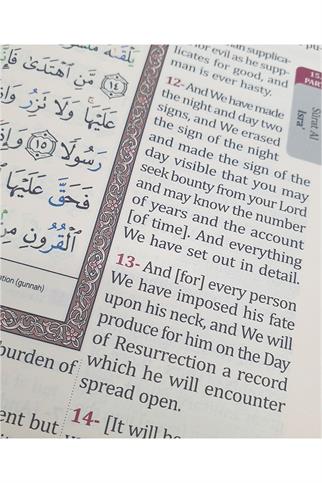 يَلْقَىٰهُ
١٤ مَّنِ ٱهْتَدَىٰ
عَلَيْهَا وَلَا تَزِرُ
رَسُولًا ١٥
فَحَقَّ عَلَيْهَا
ٱلْقُرُونِ
(gunnah)
burden of
ent but
supplica-
for evil as he supp-
licates for good, and
man is ever hasty.
12- And We have made
the night and day two
signs, and We erased
the sign of the night
and made the sign of the
day visible that you may
seek bounty from your Lord
and may know the number
of years and the account
[of time]. And everything
We have set out in detail.
13- And [for] every person
We have imposed his fate
upon his neck, and We will
produce for him on the Day
of Resurrection a record
which he will encounter
spread open.
14- [It will
pu-
15
PART
Sūrat Al
Isra'